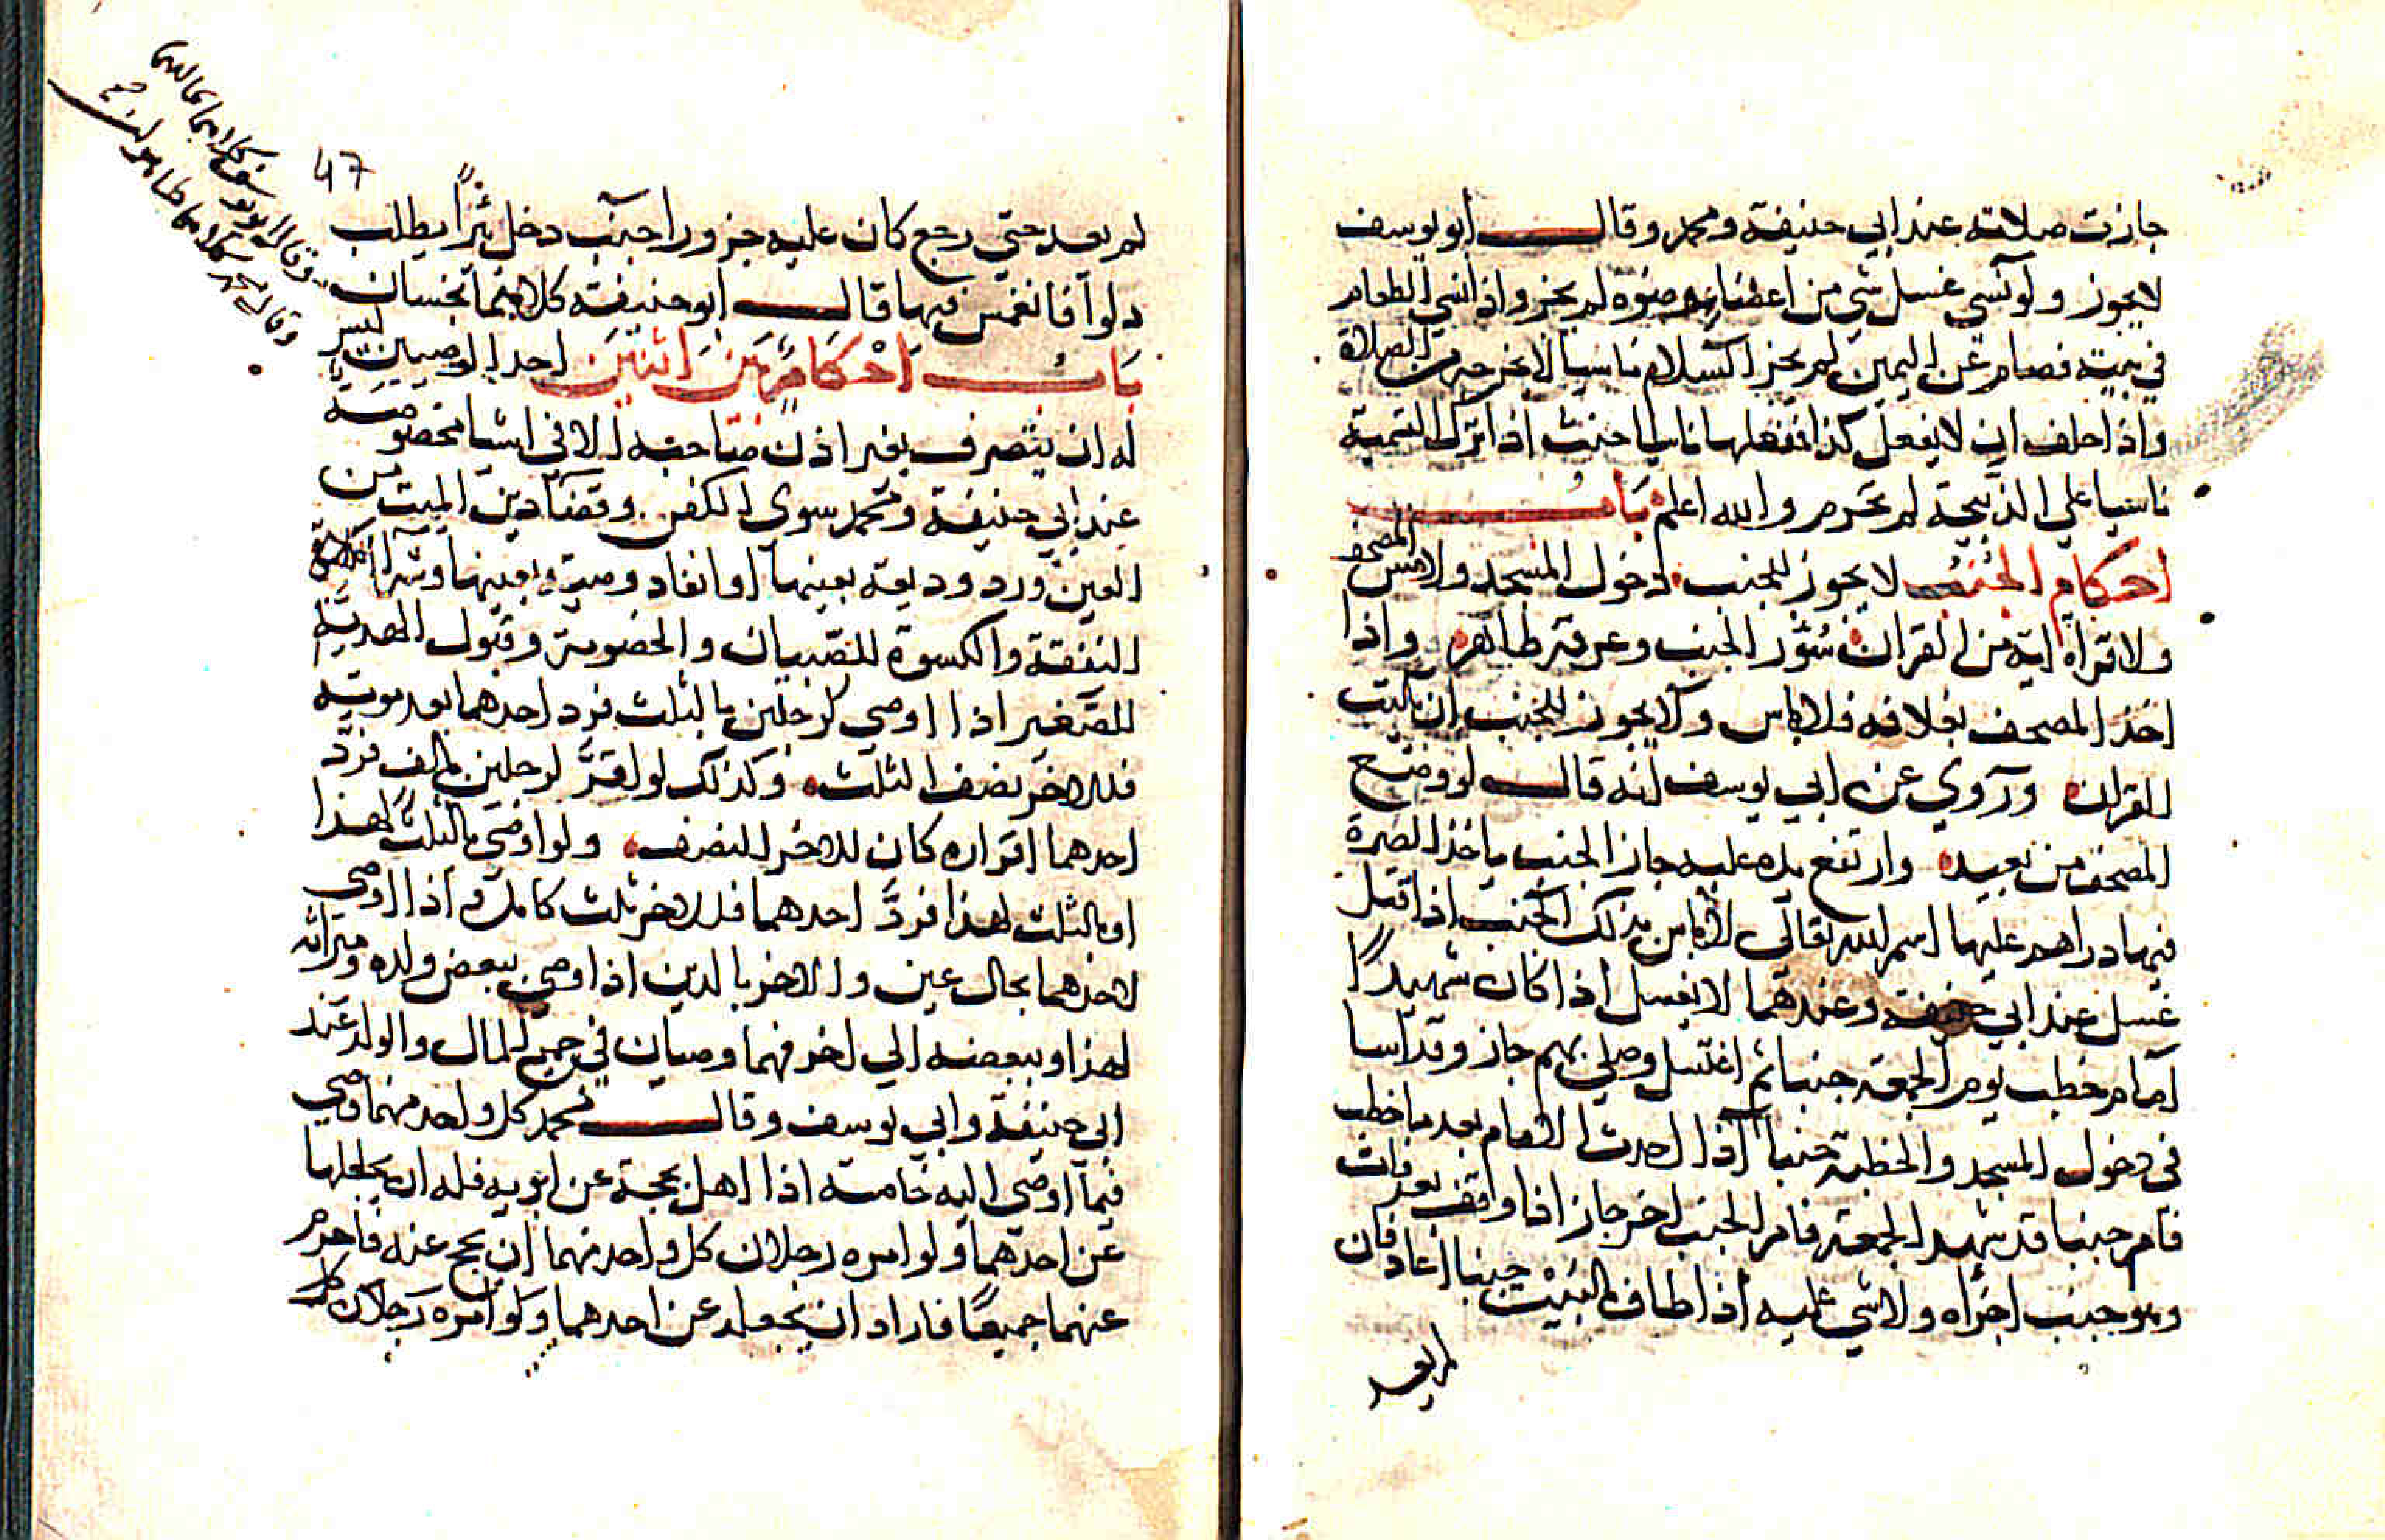 جازت صلاته عند ابي حنيفة ومحمد وقال أبو يوسف
لا يجوز ولو نسي غسل شي من اعضا وضوه لم يجز واذا نسي الطعام
في يمينه فصام عن اليمين لم يجز السلام ناسيا لا يخرجه من الصلاة
واذا حلف ان لا يفعل كذا ففعلها ناسيا حنث اذا ترك التسمية
ناسيا علي الذبيحة لم تحرم والله اعلم باب
احكام الجنب لا يجوز للجنب دخول المسجد ولا مس المصحف
ولا قراة اية من القران سور الجنب وعرقه طاهر واذا
اخذ المصحف بغلافه فلا باس ولا يجوز للجنب ان يكتب
القران وروي عن ابي يوسف انه قال لو وضع
المصحف من بعيد وارتفع يده عليه جاز الجنب ياخذ الصرة
فيها دراهم عليها اسم الله تعالى لا باس بذلك الجنب اذا قتل
غسل عند ابي حنيفة وعندهما لا يغسل اذا كان شهيدا
امام خطب يوم الجمعة جنبا ثم اغتسل وصلي بهم جاز وقد اسا
في دخول المسجد والخطبة جنبا اذا احدث الامام بعد ما خطب
فامر جنبا قد شهد الجمعة فامر الجنب اخر جاز اذا وقف بعرفات
وهو جنب اجزاه ولا شي عليه اذا طاف بالبيت جنبا اعاد فان
47
لم يعد حتى رجع كان عليه جزور جنب دخل بئرا يطلب
دلوا فانغمس فيها قال أبو حنيفة كلاهما نجسان
وقال ابو يوسف كلاهما بحالهما
وقال محمد كلاهما طاهران
باب احكام من اثنين احد الوصيين ليس
له ان يتصرف بغير اذن صاحبه الا في اشيا مخصوصة
عند ابي حنيفة ومحمد سوي الكفن وقضا دين الميت من
العين ورد وديعة بعينها او انفاد وصية بعينها وشرا
النفقة والكسوة للصبيان والخصومة وقبول الهدية
للصغير اذا اوصي لرجلين بالثلث فرد احدهما بعد موته
فللاخر نصف الثلث وكذلك لو اقر لرجلين بالف فرد
احدهما اقراره كان للاخر النصف ولو اوصى بالثلث لهذا
او بالثلث لهذا فرد احدهما فللاخر ثلث كامل واذا اوصي
لاحدهما بمال عين وللاخر بالدين اذا اوصي ببعض ولده وميراثه
لهذا وببعضه الي اخر فهما وصيان في جميع المال والولد عند
ابي حنيفة وابي يوسف وقال محمد كل واحد منهما وصي
فيما اوصى اليه خاصة اذا اهل بحجة عن ابويه فله ان يجعلها
عن احدهما ولو امره رجلان كل واحد منهما ان يحج عنه فاحرم
عنهما جميعا فاراد ان يجعله عن احدهما ولو امره رجلان كل